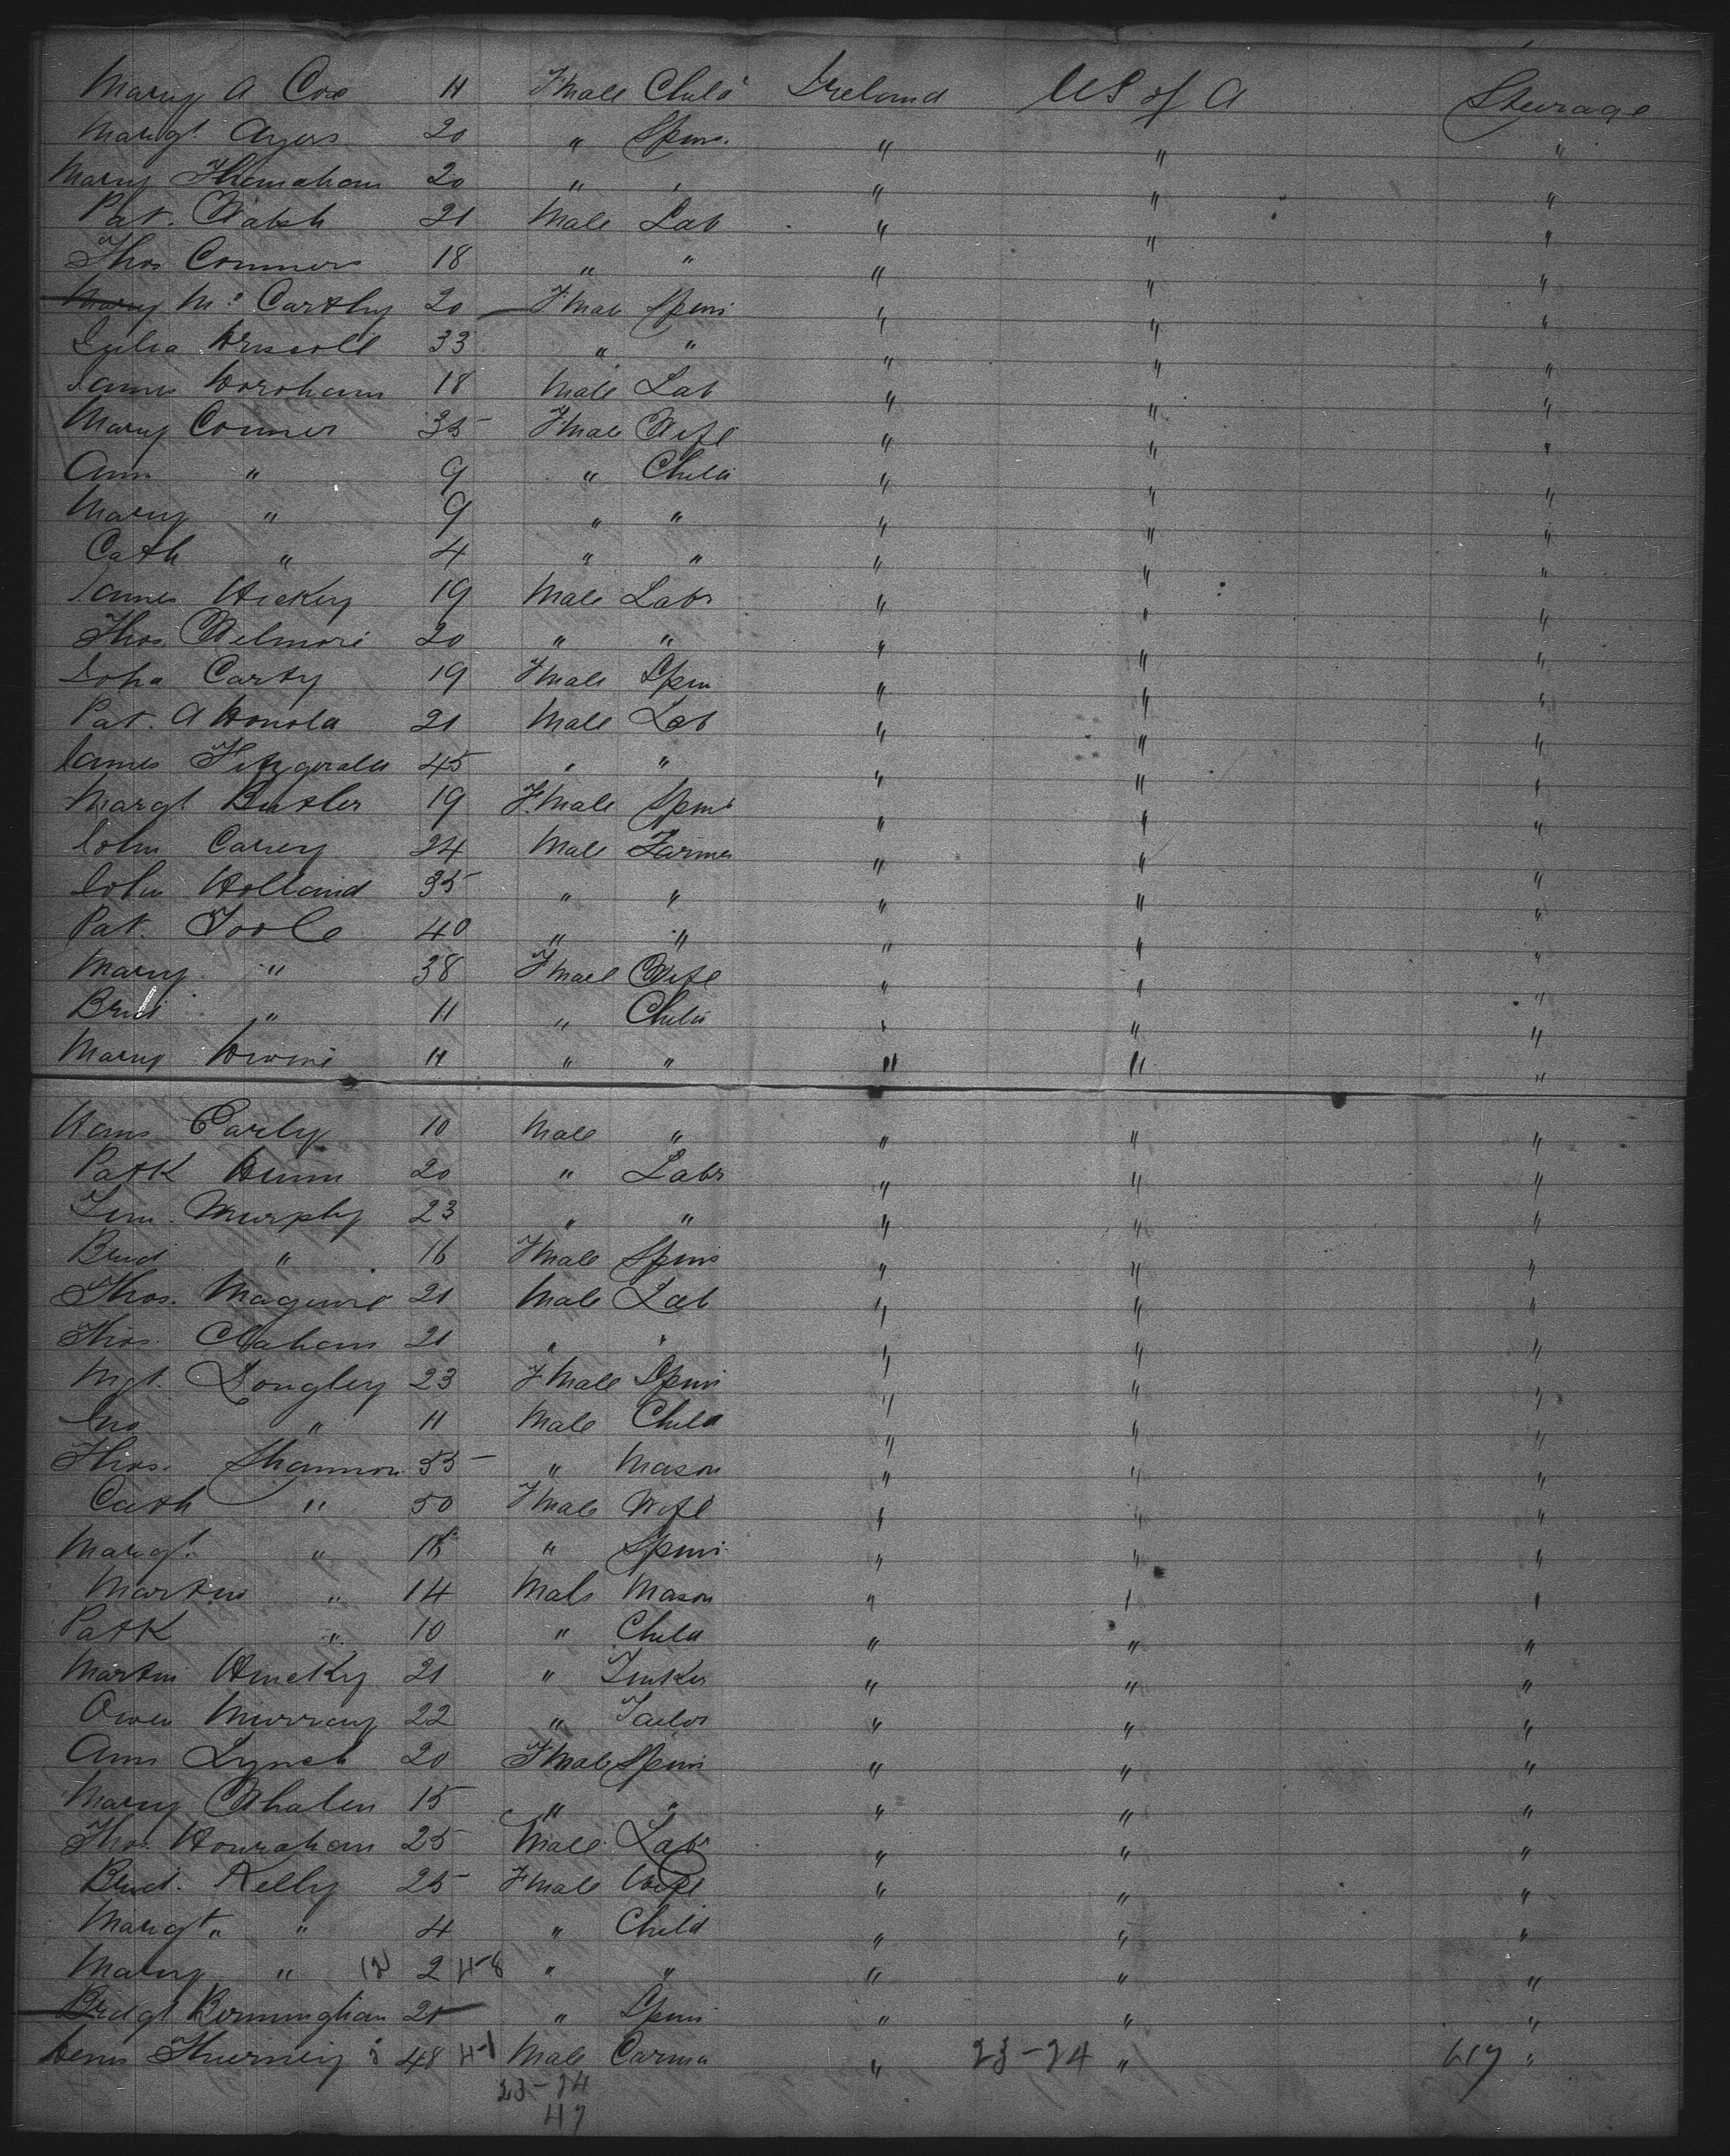 Mary A Cox 11 Fmale Child Ireland US of A Steerage
Margt Ayers 20 " Spins. " " "
Mary 20 " " " " "
Pat. Walsh 21 Male Lab " " "
Thos Connors 18 " " " " "
Mary Mc Carthy 20 Fmale Spins " " "
Julia Driscoll 33 " " " " "
James 18 Male Lab " " "
Mary Connor 35 Fmale Wife " " "
Ann " 9 " Child " " "
Mary " 9 " " " " "
Cath " 4 " " " " "
James Hickey 19 Male Labr " " "
Thos. 20 " " " " "
Joha Carty 19 Fmale Spin " " "
Pat. 21 Male Lab " " "
James Fitzgerald 45 " " " " "
Margt Butler 19 Fmale Spins " " "
John Carey 24 Male Farmer " " "
John Holland 35 " " " " "
Pat. Toole 40 " " " " "
Mary " 38 Fmale Wife " " "
Brid " 11 " Child " " "
Mary 11 " " " " "
10 Male " " " "
Patk Dunn 20 " Labr " " "
Tim. Murphy 23 " " " " "
Brid " 16 Fmale Spins " " "
Thos. Maguire 21 Male Lab " " "
Thos. 21 " " " " "
Mgt. Longley 23 Fmale Spins " " "
Jno " 11 Male Child " " "
Thos. Shannon 55 " Mason " " "
Cath " 50 Fmale Wife " " "
Margt. " " Spins " " "
Martin " 14 Male Mason " " "
Patk " 10 " Child " " "
Martin 21 " Tinker " " "
Owen Murray 22 " Tailor " " "
Ann Lynch 20 Fmale Spins " " "
Mary Whalen 15 " " " " "
Thos. Hourahan 25 Male Labr " " "
Brid. Kelly 25 Fmale Wife " " "
Margt " " 4 " Child " " "
Mary " 2 " " " " "
Bridgt Birmingham 21 " Spins " " "
48 Male " 23-24 " "
23-24
47